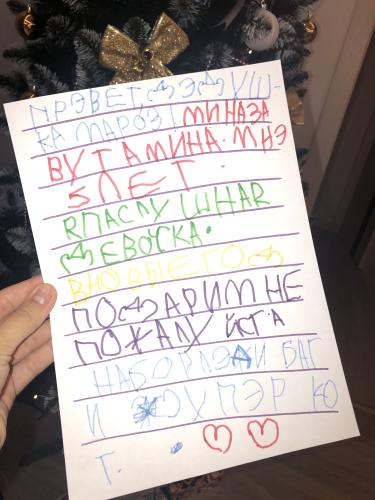 ПРЭВЕТ ДЭДУШ-
КА МАРОЗ! МИНАЗА
ВУТ АМИНА. МНЭ
5 ЛЕТ.
ЯПАСЛУШНАЯ
ДЕВОЧКА.
ВНОВЫЕГОД
ПОДАРИМНЕ
ПОЖАЛУЙСТА
НАБОР ЛЭДИ БАГ
И СУПЭР КО
Т.